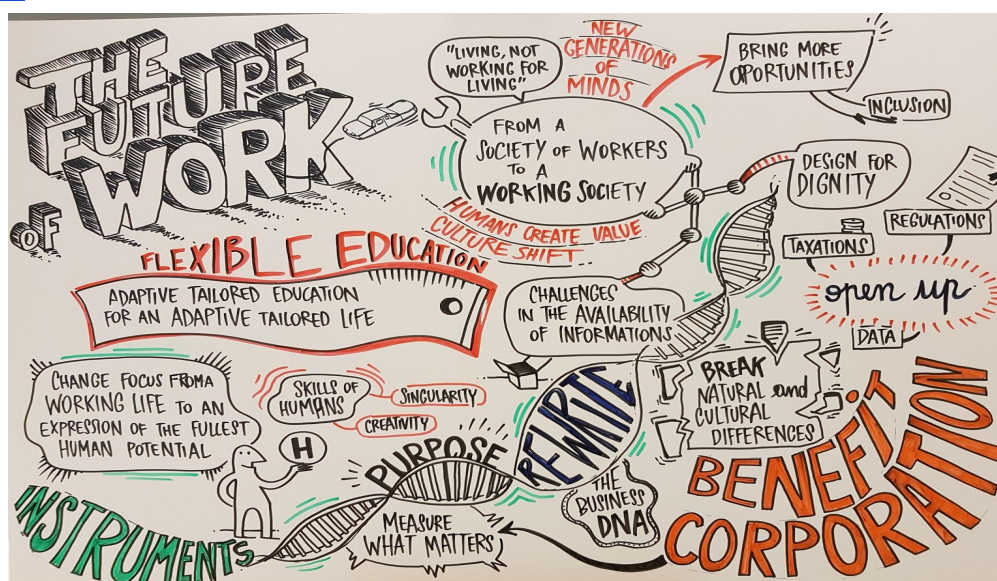 THE
FUTURE
OF WORK
"LIVING, NOT
WORKING FOR
LIVING"
NEW
GENERATIONS
OF
MINDS
BRING MORE
OPORTUNITIES
INCLUSION
FROM A
SOCIETY OF WORKERS
TO A
WORKING SOCIETY
HUMANS CREATE VALUE
CULTURE SHIFT
DESIGN FOR
DIGNITY
REGULATIONS
TAXATIONS
open up
DATA
FLEXIBLE EDUCATION
ADAPTIVE TAILORED EDUCATION
FOR AN ADAPTIVE TAILORED LIFE
CHALLENGES
IN THE AVAILABILITY
OF INFORMATIONS
CHANGE FOCUS FROM A
WORKING LIFE TO AN
EXPRESSION OF THE FULLEST
HUMAN POTENTIAL
SKILLS OF
HUMANS
SINGULARITY
CREATIVITY
H
BREAK
NATURAL and
CULTURAL
DIFFERENCES
REWRITE
THE
BUSINESS
DNA
PURPOSE
MEASURE
WHAT MATTERS
INSTRUMENTS
BENEFIT
CORPORATION